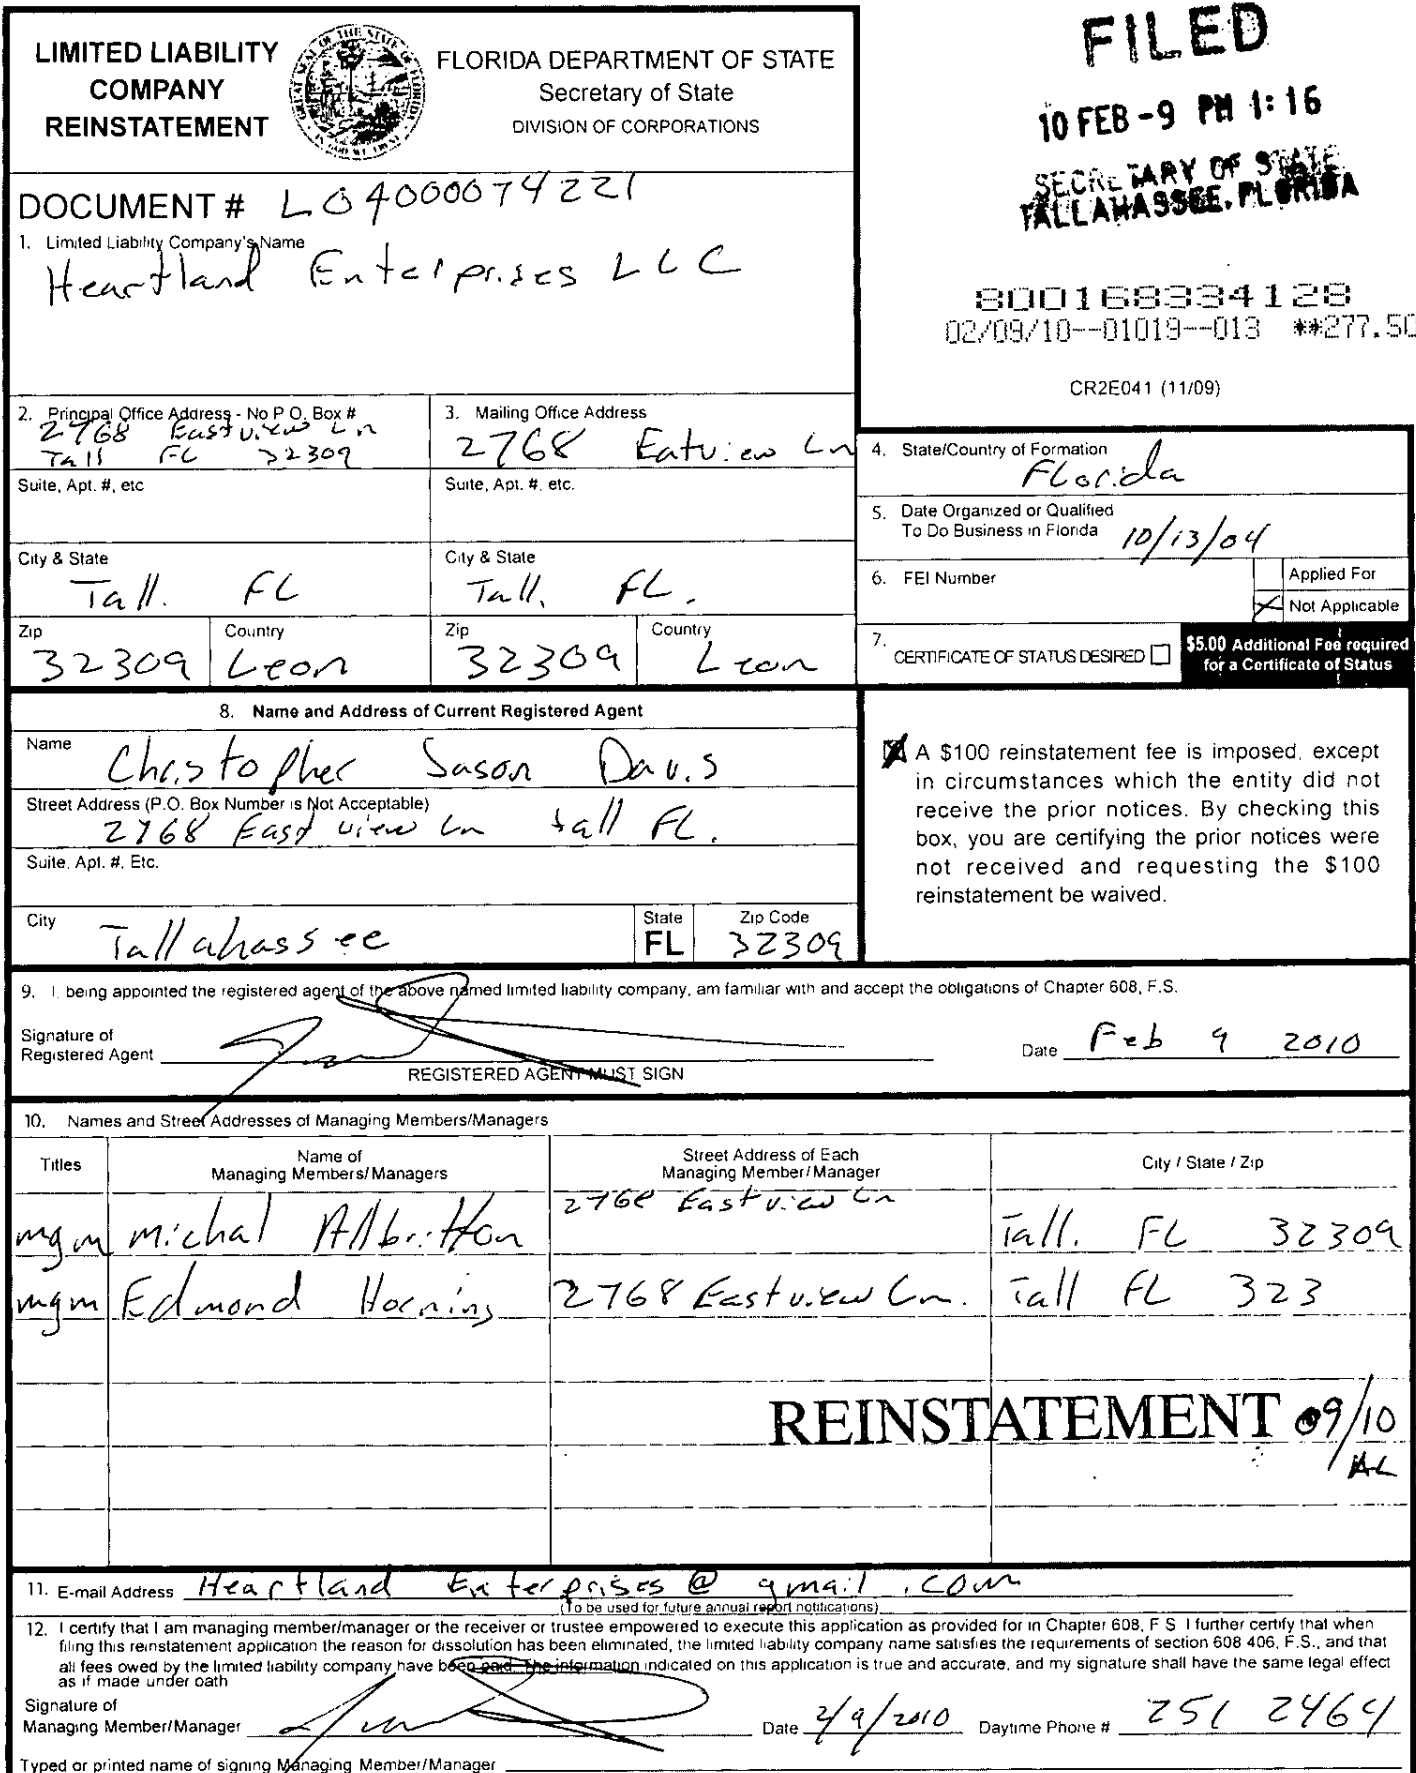 LIMITED LIABILITY
COMPANY
REINSTATEMENT
FLORIDA DEPARTMENT OF STATE
Secretary of State
DIVISION OF CORPORATIONS
FILED
10 FEB -9 PM 1:16
SECRETARY OF STATE
TALLAHASSEE, FLORIDA
DOCUMENT # L04000074221
1. Limited Liability Company's Name
Heartland Enterprises LLC
800168334128
02/09/10--01019--013 **277.50
CR2E041 (11/09)
2. Principal Office Address - No P.O. Box #
2768 Eastview Ln
Tall FL 32309
3. Mailing Office Address
2768 Eatview Ln
Suite, Apt. #, etc
Suite, Apt. #, etc.
City & State
Tall. FL
City & State
Tall. FL.
Zip
32309
Country
Leon
Zip
32309
Country
Leon
4. State/Country of Formation
FLorida
5. Date Organized or Qualified
To Do Business in Florida 10/13/04
6. FEI Number
Applied For
Not Applicable
7. CERTIFICATE OF STATUS DESIRED
$5.00 Additional Fee required
for a Certificate of Status
8. Name and Address of Current Registered Agent
Name Christopher Jason Davis
Street Address (P.O. Box Number is Not Acceptable)
2768 East view Ln tall FL.
Suite, Apt. #, Etc.
City Tallahassee
State
FL
Zip Code
32309
A $100 reinstatement fee is imposed, except
in circumstances which the entity did not
receive the prior notices. By checking this
box, you are certifying the prior notices were
not received and requesting the $100
reinstatement be waived.
9. I, being appointed the registered agent of the above named limited liability company, am familiar with and accept the obligations of Chapter 608, F.S.
Signature of
Registered Agent
Date Feb 9 2010
REGISTERED AGENT MUST SIGN
10. Names and Street Addresses of Managing Members/Managers
Titles
Name of
Managing Members/Managers
Street Address of Each
Managing Member/Manager
City / State / Zip
mgm Michal Allbritton 2768 Eastview Ln Tall. FL 32309
mgm Edmond Horning 2768 Eastview Ln. Tall FL 323
REINSTATEMENT 09/10
AL
11. E-mail Address Heartland Enterprises@gmail.com
(To be used for future annual report notifications)
12. I certify that I am managing member/manager or the receiver or trustee empowered to execute this application as provided for in Chapter 608, F S I further certify that when
filing this reinstatement application the reason for dissolution has been eliminated, the limited liability company name satisfies the requirements of section 608 406, F.S., and that
all fees owed by the limited liability company have been paid. The information indicated on this application is true and accurate, and my signature shall have the same legal effect
as if made under oath
Signature of
Managing Member/Manager
Date 2/9/2010 Daytime Phone # 251 2464
Typed or printed name of signing Managing Member/Manager